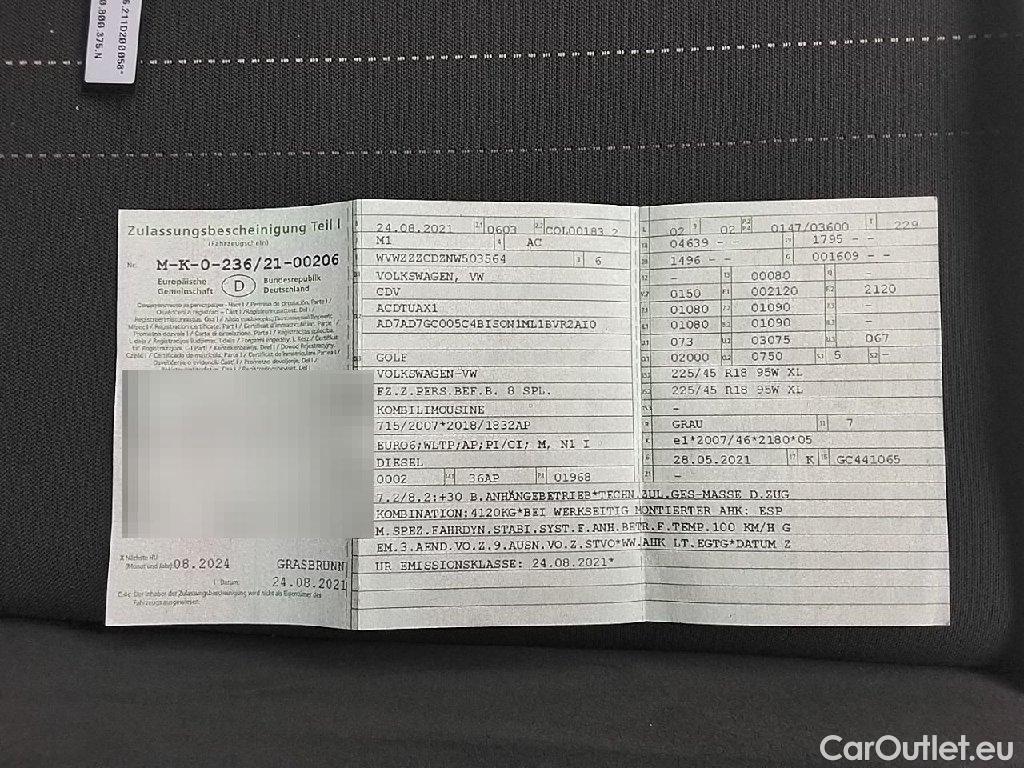 Zulassungsbescheinigung Teil I
(Fahrzeugschein)
Nr. M-K-0-236/21-00206
Europäische Gemeinschaft
D
Bundesrepublik Deutschland
X Nächste HU (Monat und Jahr) 08.2024
GRASBRUNN
I Datum: 24.08.2021
C.4c Der Inhaber der Zulassungsbescheinigung wird nicht als Eigentümer des
Fahrzeugs ausgewiesen.
24.08.2021 0603 COL00183 2
M1 AC
WVWZZZCDZNW503564 6
VOLKSWAGEN, VW
CDV
ACDTUAX1
AD7AD7GC005C4BISON1ML1BVR2AI0
GOLF
VOLKSWAGEN-VW
FZ.Z.PERS.BEF.B. 8 SPL.
KOMBILIMOUSINE
715/2007*2018/1832AP
EURO6;WLTP;AP;PI/CI; M, N1 I
DIESEL
0002 36AP 01968
7.2/8.2:+30 B.ANHÄNGEBETRIEB*TECHN.ZUL.GES-MASSE D.ZUG
KOMBINATION:4120KG*BEI WERKSEITIG MONTIERTER AHK: ESP
M.SPEZ.FAHRDYN.STABI.SYST.F.ANH.BETR.F.TEMP.100 KM/H G
EM.3.AEND.VO.Z.9.AUSN.VO.Z.STVO*WW.AHK LT.EGTG*DATUM Z
UR EMISSIONSKLASSE: 24.08.2021*
02 02 0147/03600 229
04639 - - 1795 - -
1496 - - 001609 - -
- 00080
0150 002120 2120
01080 01090
01080 01090
073 03075 067
02000 0750 5 -
225/45 R18 95W XL
225/45 R18 95W XL
-
GRAU 7
e1*2007/46*2180*05
28.05.2021 K GC441065
-
CarOutlet.eu